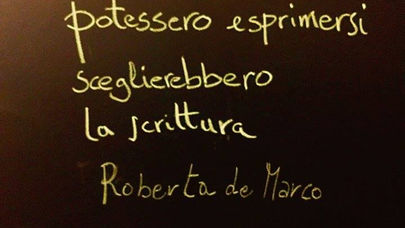 potessero esprimersi
sceglierebbero
la scrittura
Roberta de Marco